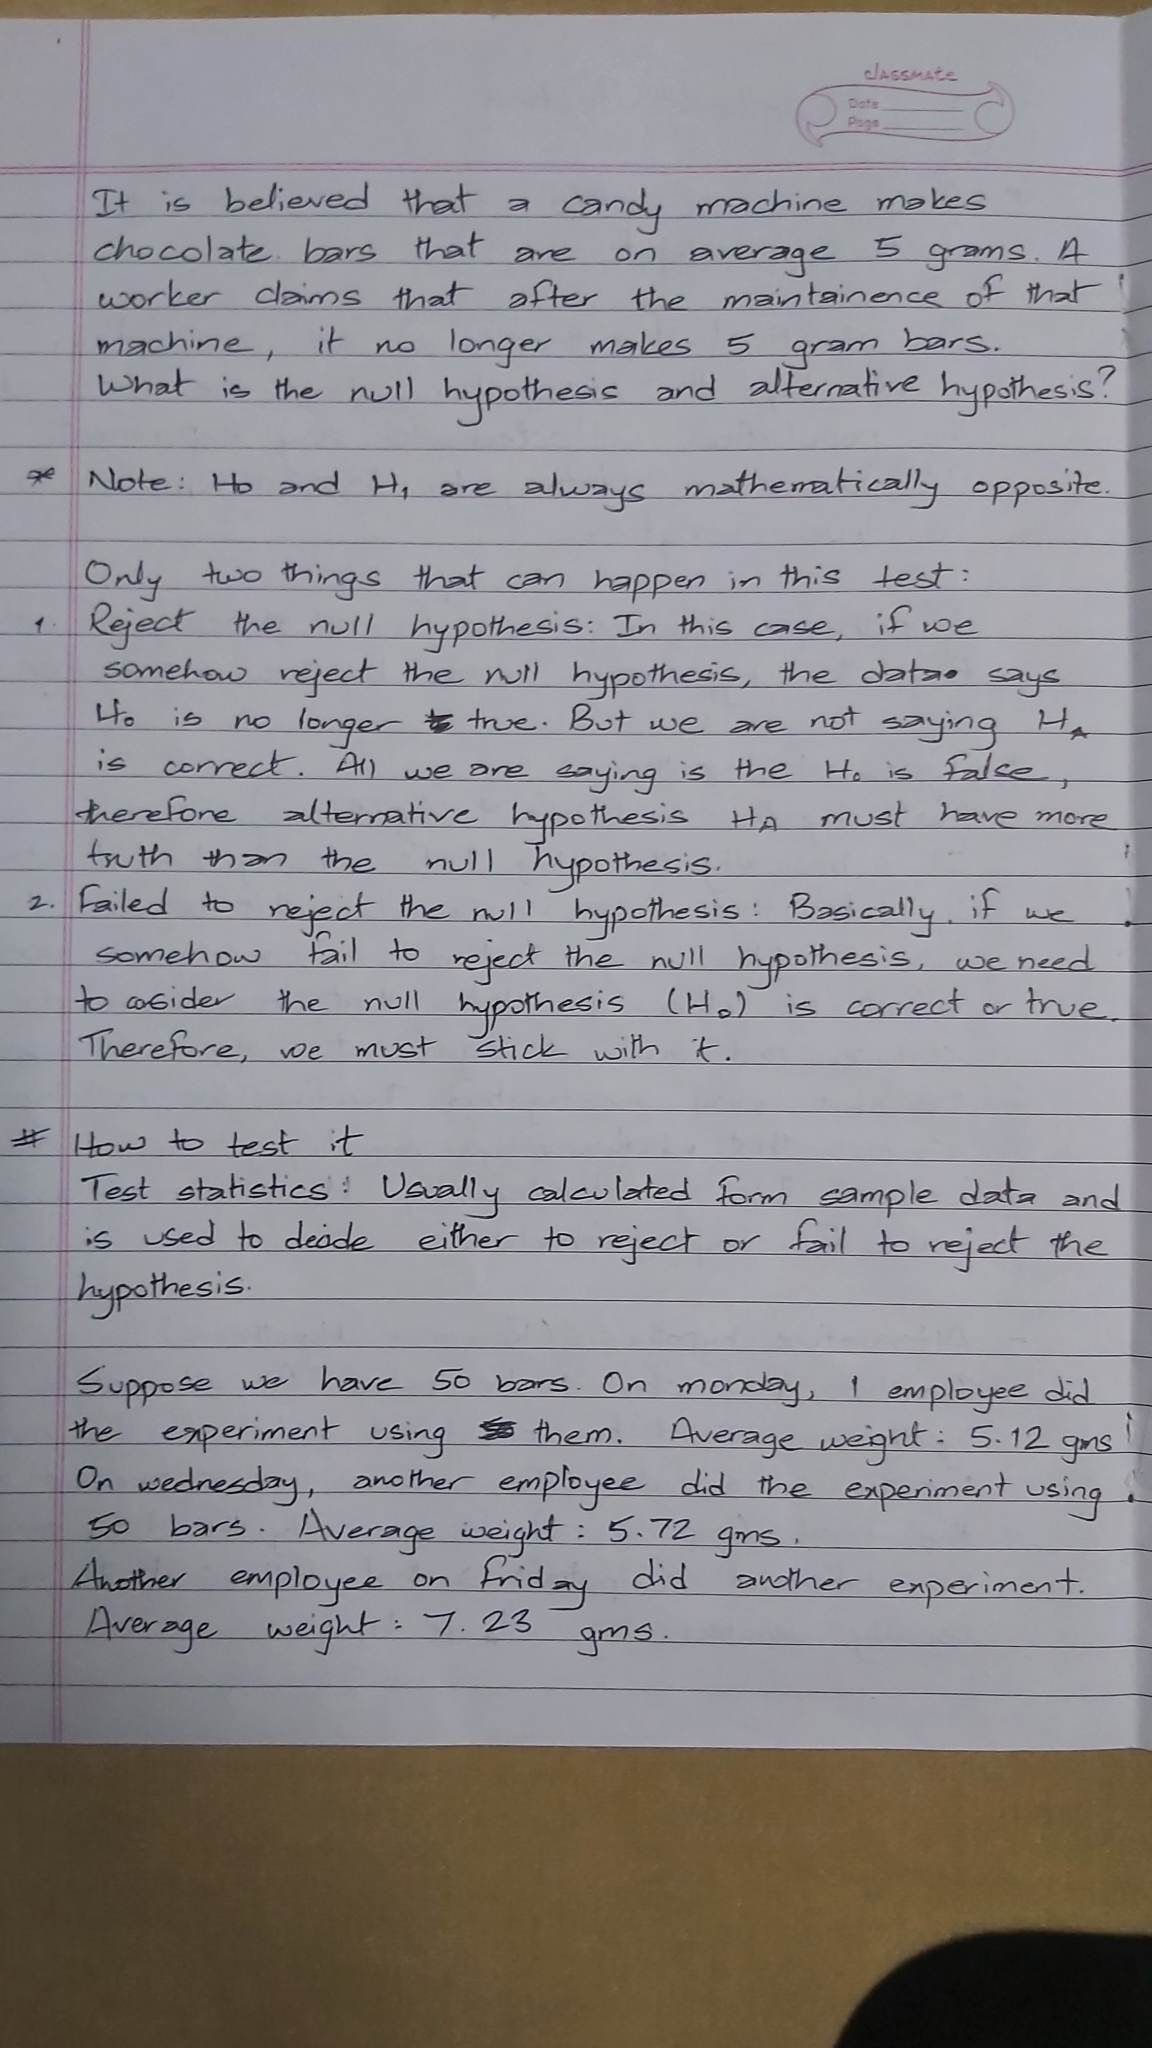 classmate
Date
Page
It is believed that a candy machine makes
chocolate bars that are on average 5 grams. A
worker claims that after the maintainence of that
machine, it no longer makes 5 gram bars.
What is the null hypothesis and alternative hypothesis?
* Note: H0 and H1 are always mathematically opposite.
Only two things that can happen in this test:
1. Reject the null hypothesis: In this case, if we
somehow reject the null hypothesis, the data says
H0 is no longer true. But we are not saying HA
is correct. All we are saying is the H0 is false,
therefore alternative hypothesis HA must have more
truth than the null hypothesis.
2. Failed to reject the null hypothesis: Basically, if we
somehow fail to reject the null hypothesis, we need
to cosider the null hypothesis (H0) is correct or true.
Therefore, we must stick with it.
# How to test it
Test statistics: Usually calculated form sample data and
is used to decide either to reject or fail to reject the
hypothesis.
Suppose we have 50 bars. On monday, 1 employee did
the experiment using them. Average weight: 5.12 gms
On wednesday, another employee did the experiment using
50 bars. Average weight: 5.72 gms.
Another employee on friday did another experiment.
Average weight: 7.23 gms.